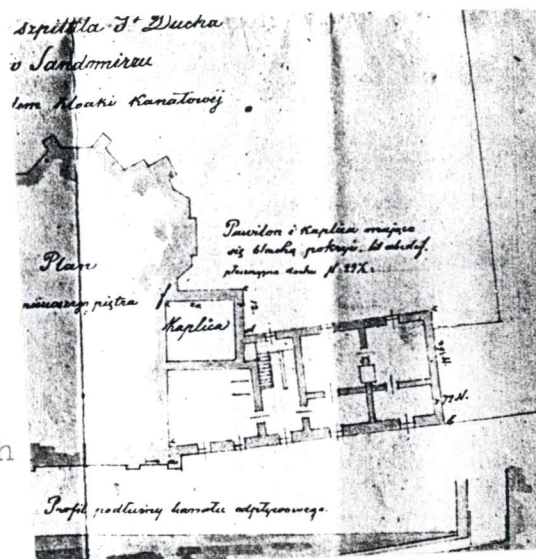 szpitala Sº Ducha
w Sandomirzu
kloaki Kanałowej
Pawilon i Kaplica mające
się blachą pokryć. lit abcdef.
płaszczyzna dachu
Plan
pierwszego piętra
f
Kaplica
Profil podłużny kanału odpływowego.